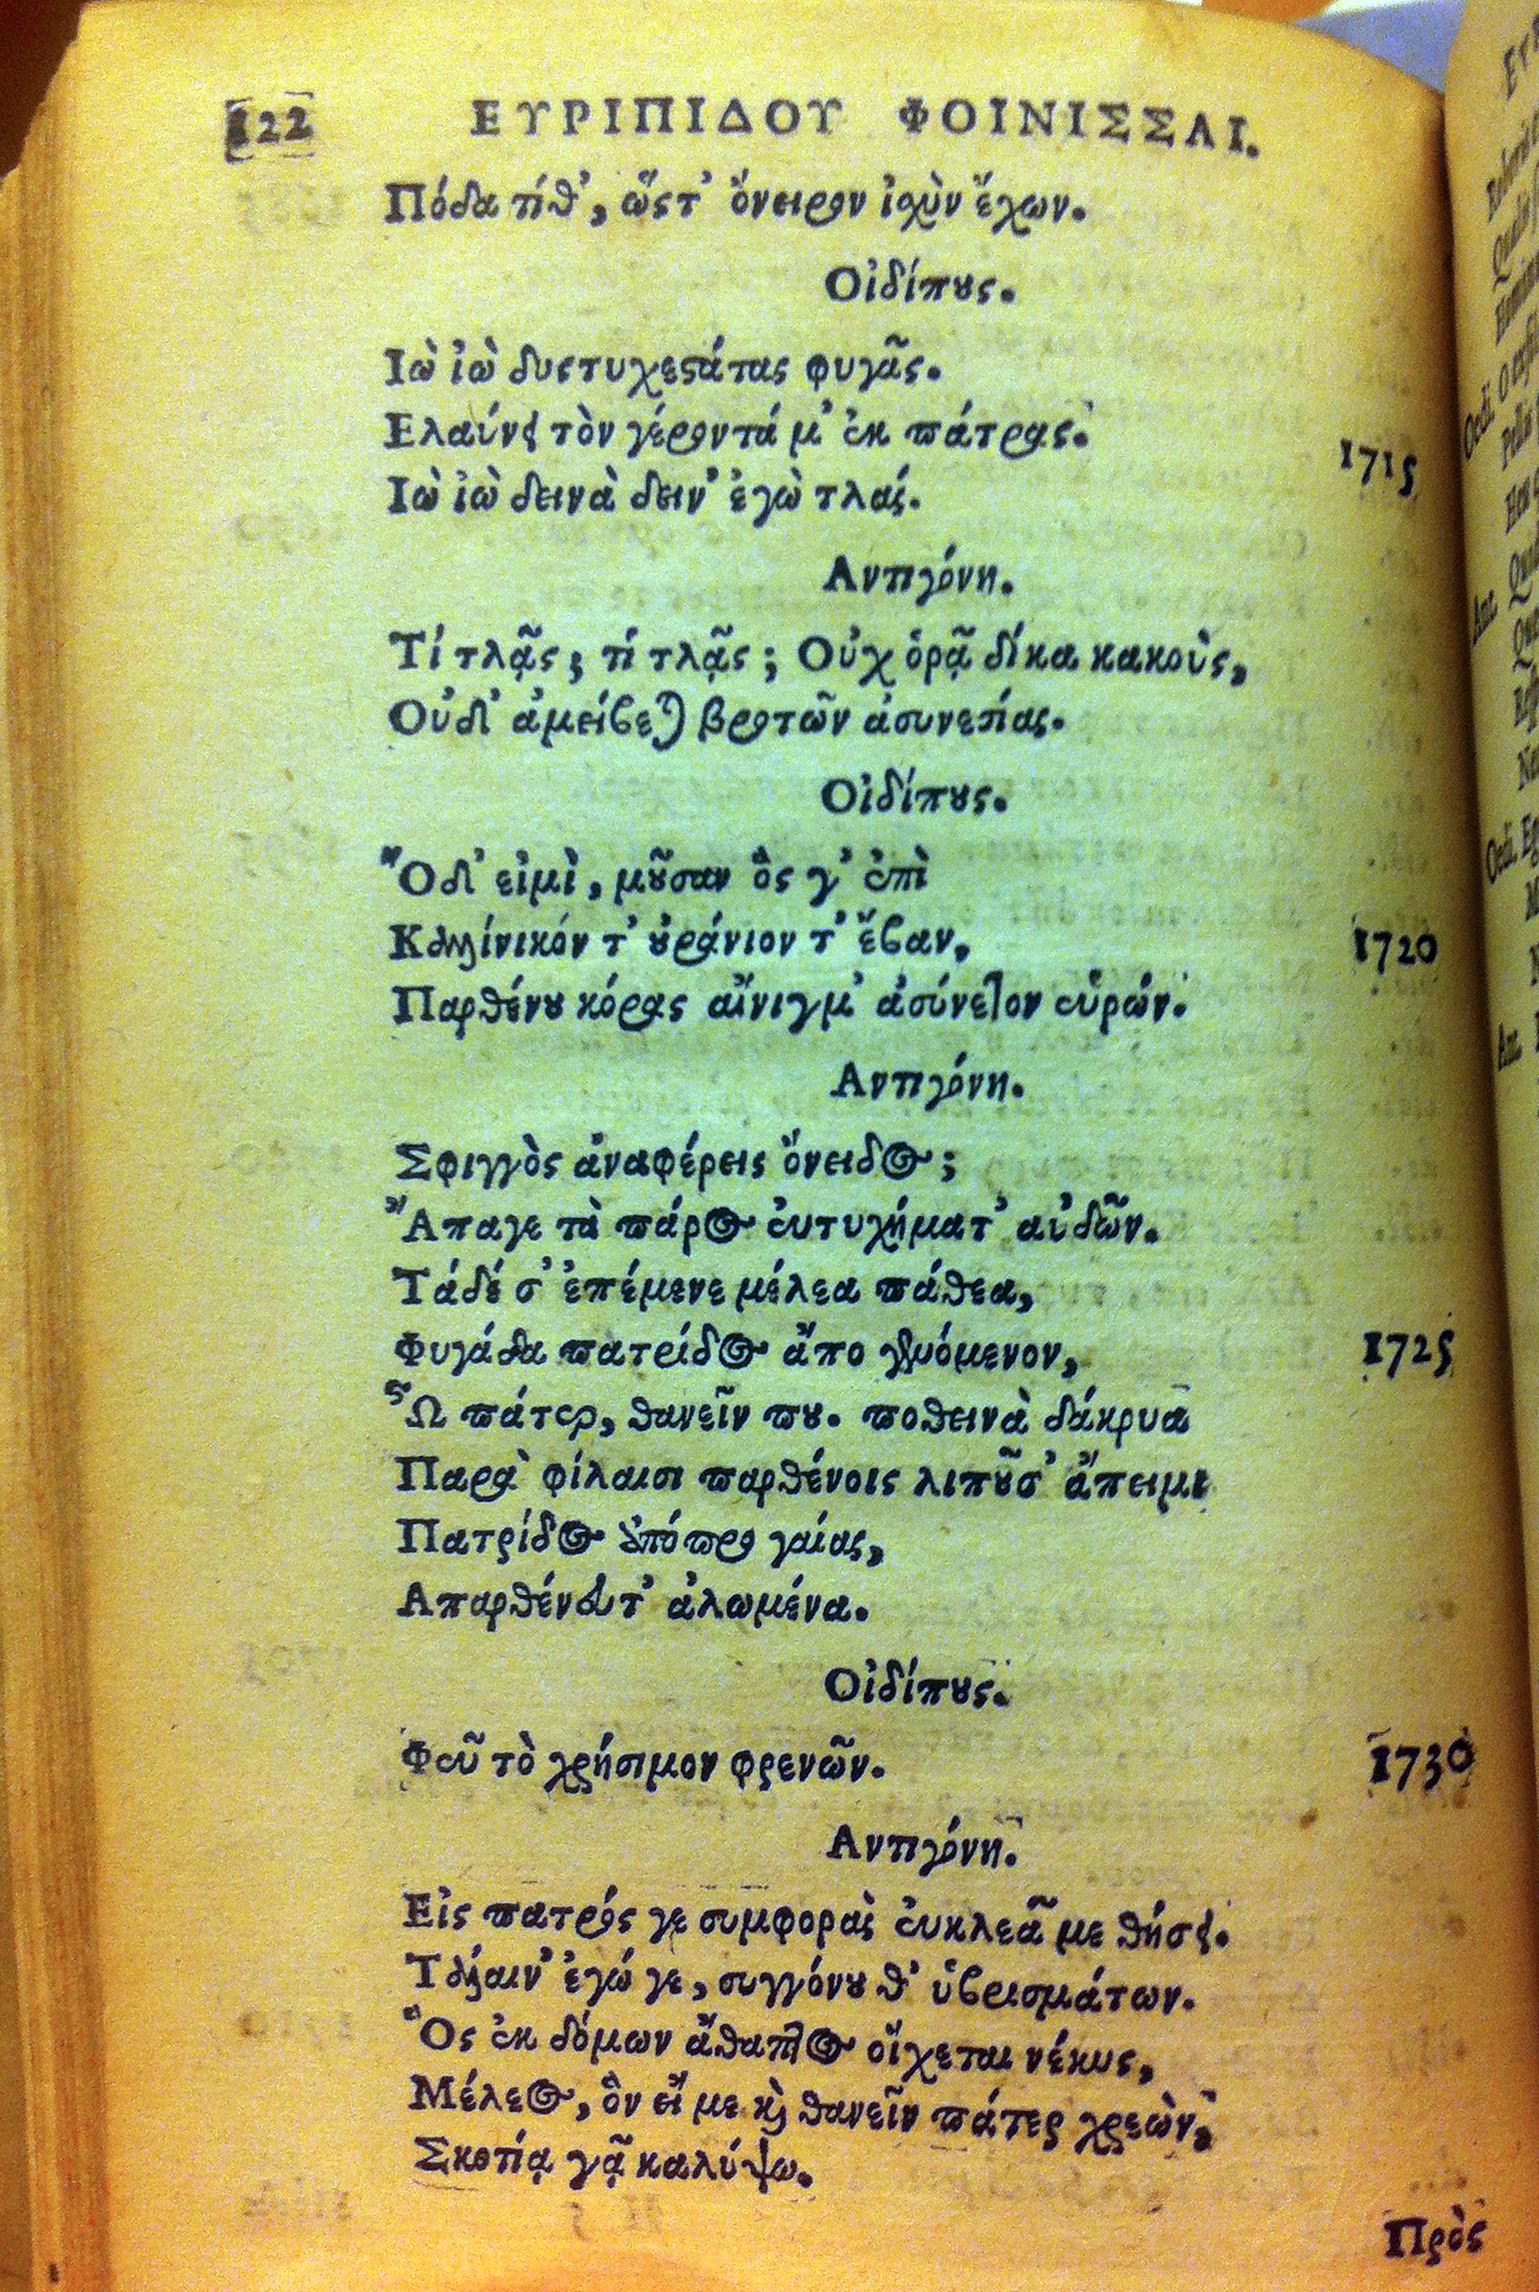 122 ΕΥΡΙΠΙΔΟΥ ΦΟΙΝΙΣΣΑΙ.
Πόδα τίθ', ὥςτ' ὄνειρον ἰσχὺν ἔχων.
Οἰδίπους.
Ιὼ ἰὼ δυςτυχεστάτας φυγᾶς.
Ελαύνει τὸν γέροντά μ' ἐκ πάτρας.
1715
Ιὼ ἰὼ δεινὰ δείν' ἐγὼ τλάς.
Αντιγόνη.
Τί τλᾷς; τί τλᾷς; Οὐχ ὁρᾷ δίκα κακοὺς,
Οὐδ' ἀμείβεται βροτῶν ἀσυνεσίας.
Οἰδίπους.
Ὅδ' εἰμὶ, μοῦσαν ὃς γ' ἐπὶ
Καλλίνικόν τ' οὐράνιον τ' ἔβαν,
1720
Παρθένου κόρας αἴνιγμ' ἀσύνετον εὑρών.
Αντιγόνη.
Σφιγγὸς ἀναφέρεις ὄνειδος;
Ἄπαγε τὰ πάρος εὐτυχήματ' αὐδῶν.
Τάδέ σ' ἐπέμενε μέλεα πάθεα,
Φυγάδα πατρίδος ἄπο γενόμενον,
1725
Ὦ πάτερ, θανεῖν που. ποθεινὰ δάκρυα
Παρὰ φίλαισι παρθένοις λιποῦσ' ἄπειμι
Πατρίδος ἀπόπρο γαίας,
Απαρθένευτ' ἀλωμένα.
Οἰδίπους.
Φεῦ τὸ χρήσιμον φρενῶν.
1730
Αντιγόνη.
Εἰς πατρός γε συμφορὰς εὐκλεᾶ με θήσει.
Τάλαιν' ἐγώ γε, συγγόνου θ' ὑβρισμάτων.
Ὃς ἐκ δόμων ἄθαπτος οἴχεται νέκυς,
Μέλεος, ὃν εἴ με καὶ θανεῖν πάτερ χρεὼν,
Σκοτίᾳ γᾷ καλύψω.
Πρὸς